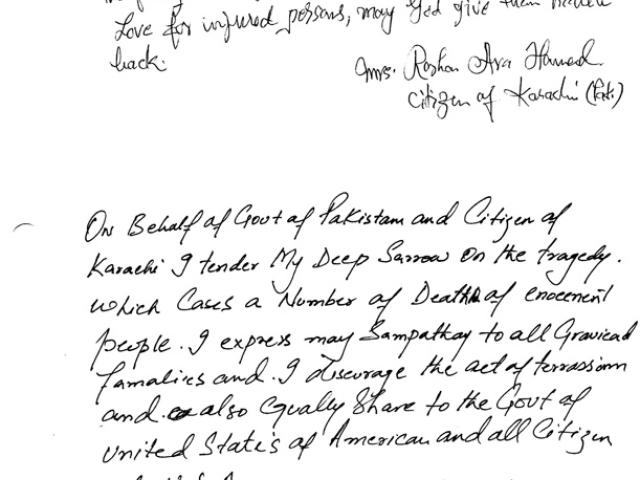 Love for injured persons, may God give them
back.
Mrs. Roshan Ara Hameed
Citizen of Karachi (Pak.)
On Behalf of Govt of Pakistan and Citizen of
Karachi I tender My Deep Sarrow on the tragedy.
which Cases a Number of Death of enocenent
people. I express may Sampathay to all Gravicad
famalies and. I discurage the act of terrassiom
and. also Equally Share to the Govt of
United State's of American and all Citizen